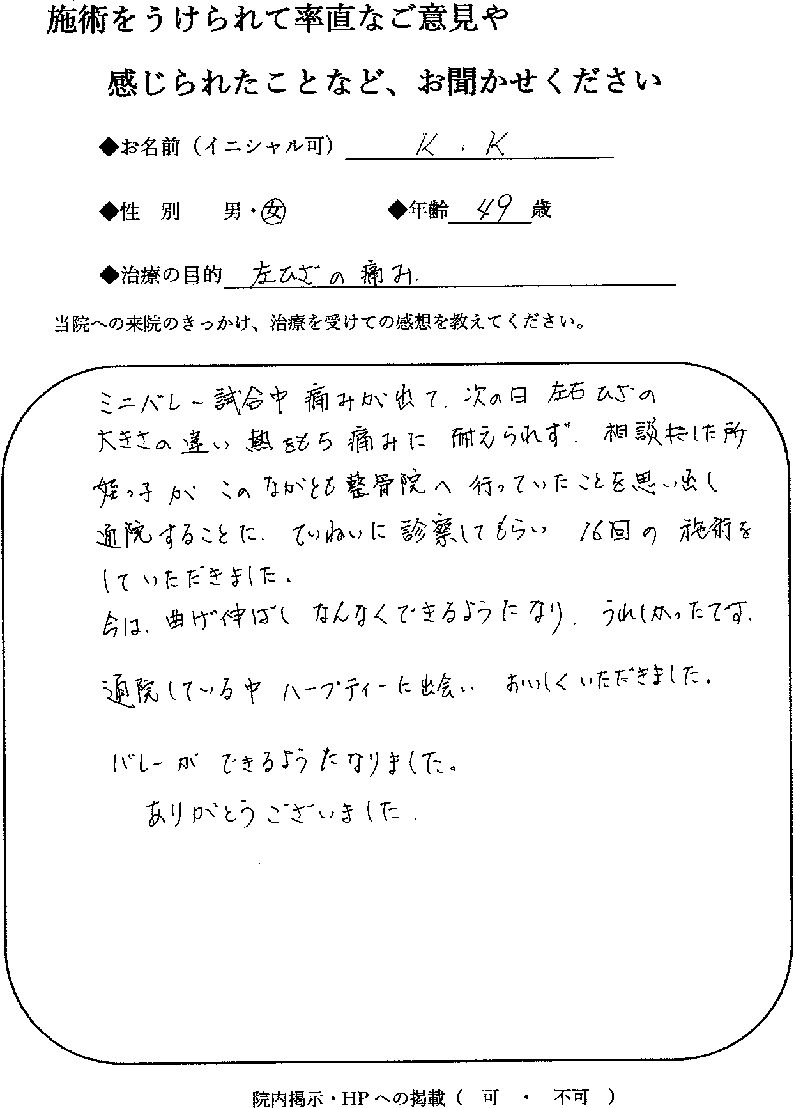 施術をうけられて率直なご意見や
感じられたことなど、お聞かせください
◆お名前（イニシャル可） K.K
◆性 別 男・女 ◆年齢 49 歳
◆治療の目的 左ひざの痛み.
当院への来院のきっかけ、治療を受けての感想を教えてください。
ミニバレー試合中 痛みが出て、次の日 左右ひざの
大きさの違い 熱をもち 痛みに 耐えられず. 相談した所
姪っ子が このながとも整骨院へ 行っていたことを思い出し
通院することに. ていねいに 診察してもらい 16回の 施術を
していただきました。
今は、曲げ伸ばし なんなくできるようになり、うれしかったです.
通院している中 ハーブティーに出会い おいしくいただきました。
バレーが できるようになりました。
ありがとうございました.
院内掲示・HPへの掲載（ 可 ・ 不可 ）